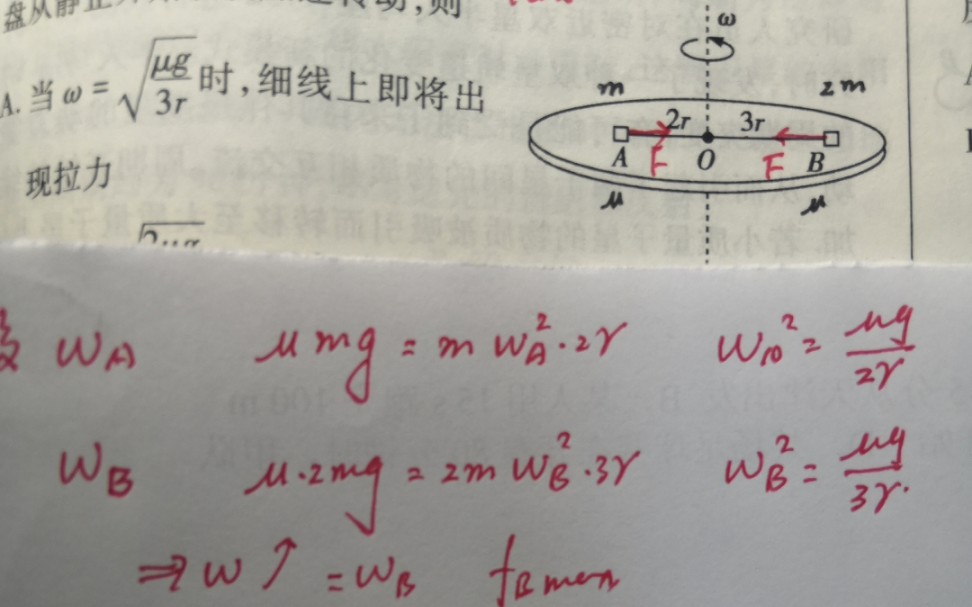 盘从静止
转动,则
ω
A. 当 ω = √(μg/3r) 时,细线上即将出
现拉力
m 2m
2r 3r
A O B
F F
μ μ
ω_A μmg = mω_A²·2r ω_A0² = μg/2r
ω_B μ·2mg = 2mω_B²·3r ω_B² = μg/3r.
⇒ ω↑ = ω_B f_Bmax